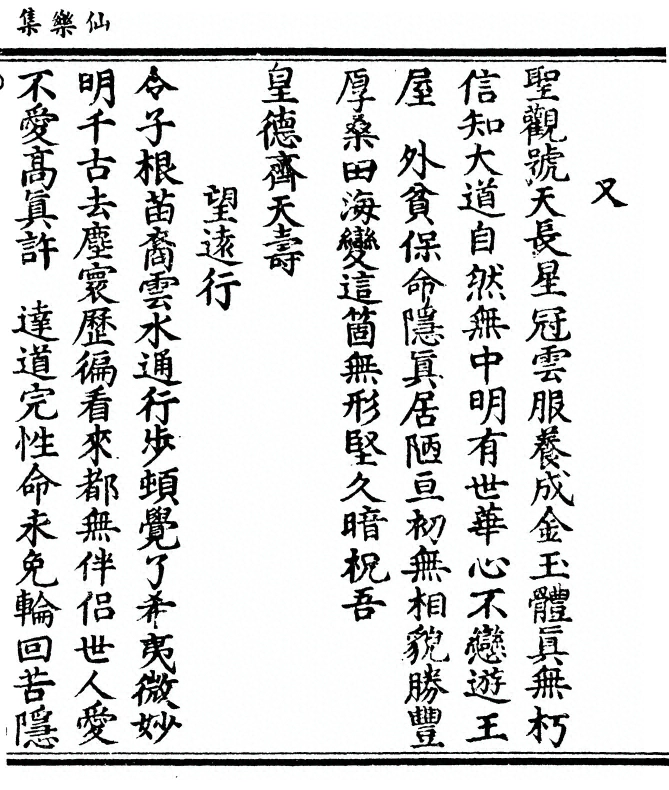 仙樂集
又
聖觀號天長星冠雲服養成金玉體真無朽
信知大道自然無中明有世華心不戀遊王
屋　外貧保命隱真居陋亘初無相貌勝豐
厚桑田海變這箇無形堅久暗祝吾
皇德齊天壽
望遠行
令子根苗裔雲水通行步頓覺了希夷微妙
明千古去塵寰歷徧看來都無伴侶世人愛
不愛高真許　達道完性命永免輪回苦隱